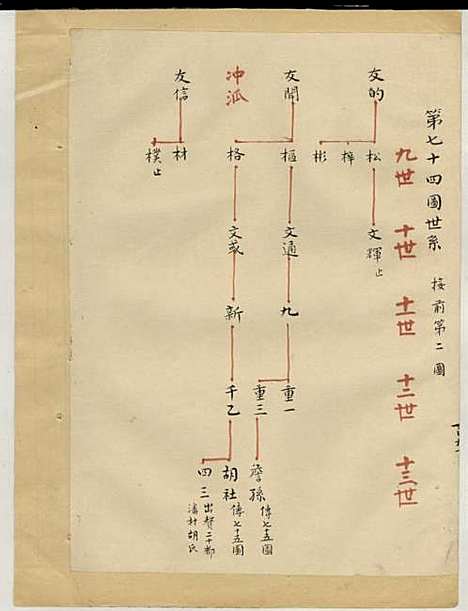 第七十四圖世系 接前第二圖
九世 十世 十一世 十二世 十三世
友的
松 文輝止
梓
彬
友聞
樞 文通 九 重一
重三 孫 傳七十五圖
冲派
格 文或 新 千乙
胡社 傳七十五圖
四三 出贅二十都
潘村胡氏
友信
材
樸止